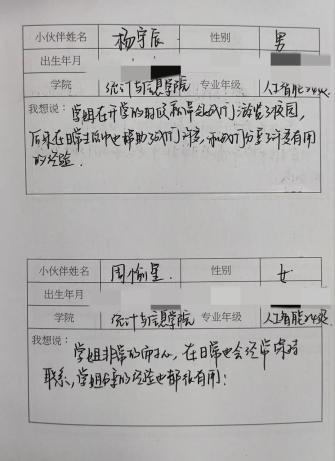 小伙伴姓名 杨宇辰 性别 男
出生年月
学院 统计与信息学院 专业年级 人工智能2424
我想说：学姐在开学的时候带领我们游览了校园，
后来在日常生活中也帮助了我们许多，和我们分享了许多有用
的经验.
小伙伴姓名 周愉星 性别 女
出生年月
学院 统计与信息学院 专业年级 人工智能24级
我想说：学姐非常的耐心，在日常也会经常保持
联系，学姐分享的经验也都很有用！